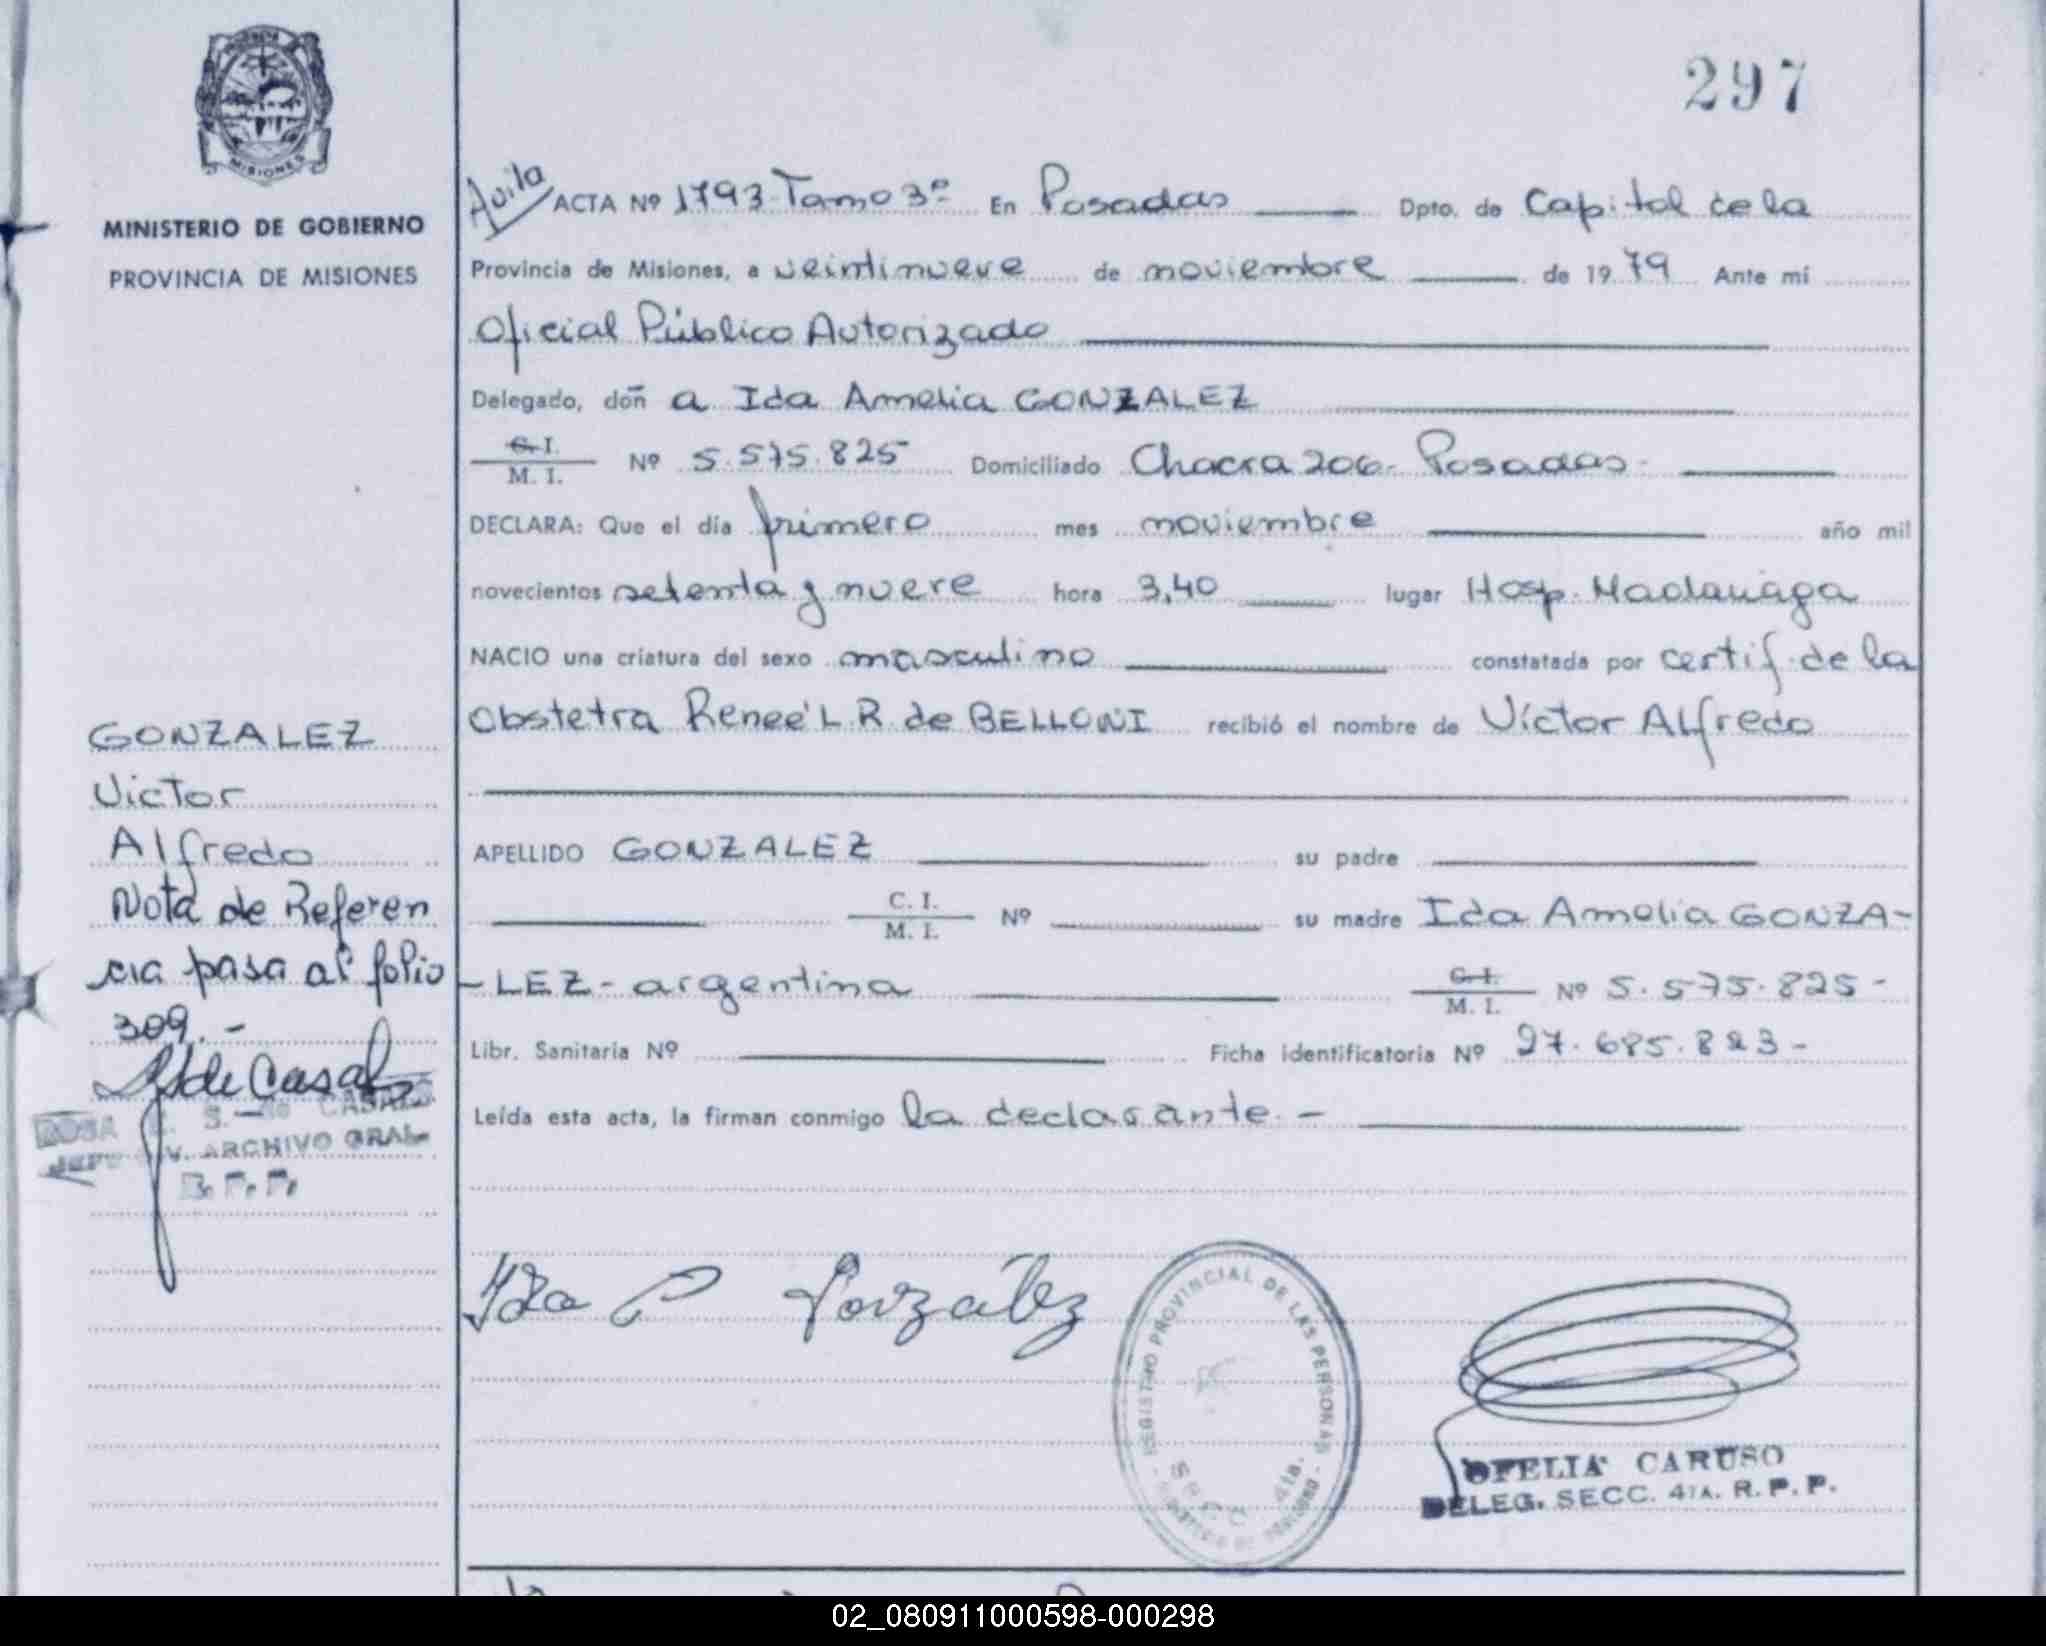 297
MISIONES
MINISTERIO DE GOBIERNO
PROVINCIA DE MISIONES
Avila
ACTA Nº 1793 Tomo 3º En Posadas Dpto. de Capital de la
Provincia de Misiones, a veintinueve de noviembre de 1979 Ante mí
Oficial Público Autorizado
Delegado, doñ a Ida Amelia GONZALEZ
C. I.
M. I. Nº 5.575.825 Domiciliado Chacra 206- Posadas-
DECLARA: Que el día primero mes noviembre año mil
novecientos setenta y nueve hora 3,40 lugar Hosp. Madariaga
NACIO una criatura del sexo masculino constatada por certif. de la
Obstetra Renee L. R. de BELLONI recibió el nombre de Víctor Alfredo
APELLIDO GONZALEZ su padre
C. I.
M. I. Nº su madre Ida Amelia GONZA-
-LEZ- argentina C. I.
M. I. Nº 5.575.825-
Libr. Sanitaria Nº Ficha identificatoria Nº 27.685.823-
Leída esta acta, la firman conmigo la declarante.-
GONZALEZ
Victor
Alfredo
Nota de Referen
cia pasa al folio
309.-
de Casal
ROSA S. de CASAL
JEFE DIV. ARCHIVO GRAL
R. P. P.
Ida Gonzalez
REGISTRO PROVINCIAL DE LAS PERSONAS
SECC. 4ta.
OFELIA CARUSO
DELEG. SECC. 4TA. R. P. P.
02_080911000598-000298